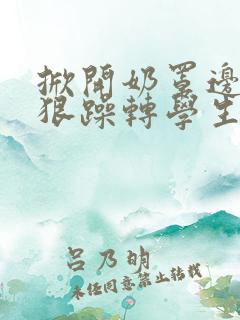 掀開奶罩邊
狠躁轉學生
呂乃明
未经同意禁止转载